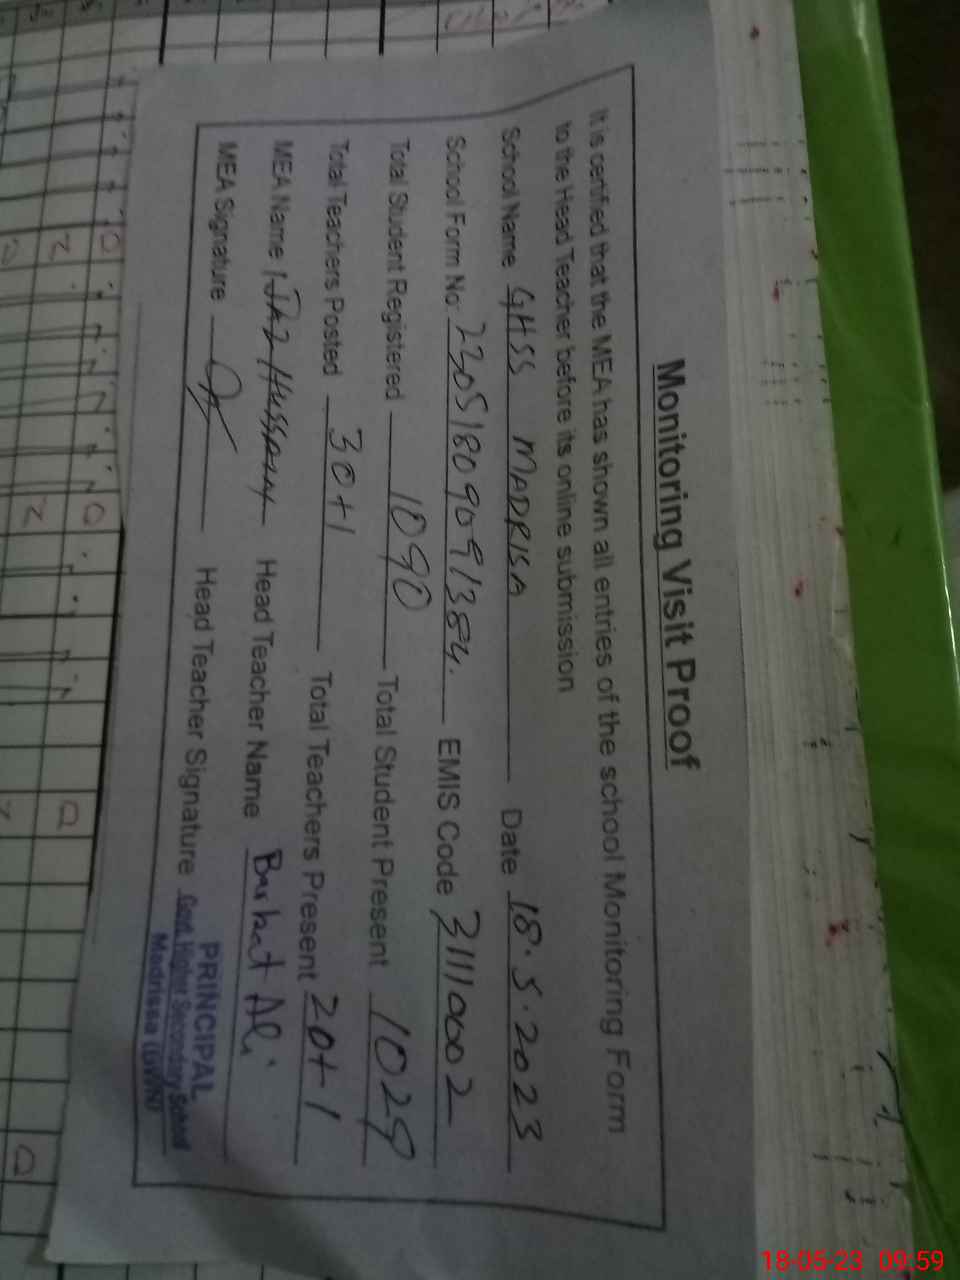 Monitoring Visit Proof
It is certified that the MEA has shown all entries of the school Monitoring Form
to the Head Teacher before its online submission
School Name GHSS MADRISA Date 18.5.2023
School Form No. 2305180909091384. EMIS Code 31110002
Total Student Registered 1090 Total Student Present 1029
Total Teachers Posted 30+1 Total Teachers Present 20+1
MEA Name IJAZ Hussain Head Teacher Name Barkat Ali
MEA Signature Head Teacher Signature
PRINCIPAL
Govt. Higher Secondary School
Madrissa (BWN)
18-05-23 09:59